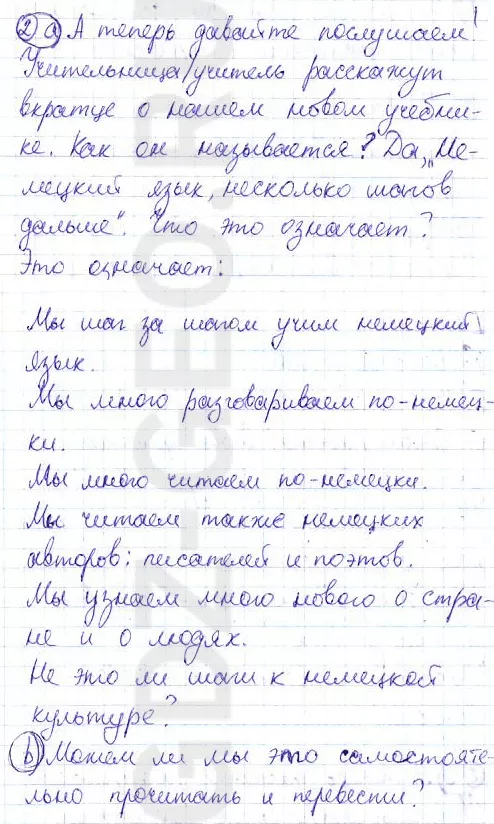 2 а) А теперь давайте послушаем!
Учительница/учитель расскажут
вкратце о нашем новом учебни-
ке. Как он называется? Да, „Не-
мецкий язык, несколько шагов
дальше". Что это означает?
Это означает:
Мы шаг за шагом учим немецкий
язык.
Мы много разговариваем по-немец-
ки.
Мы много читаем по-немецки.
Мы читаем также немецких
авторов: писателей и поэтов.
Мы узнаем много нового о стра-
не и о людях.
Не это ли шаги к немецкой
культуре?
b) Можем ли мы это самостояте-
льно прочитать и перевести?
GDZ-GEO.RU